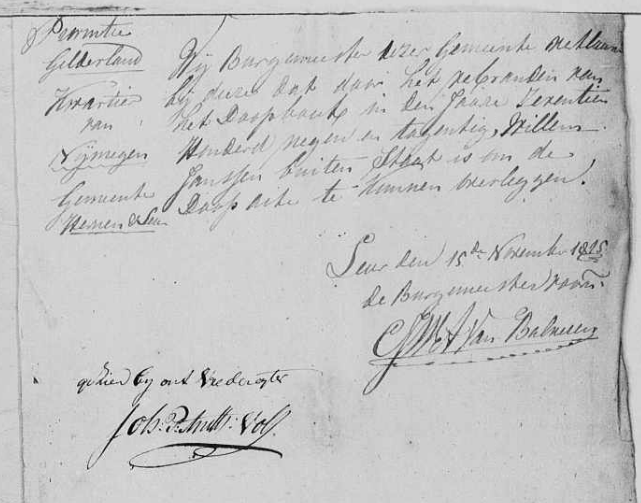 Provintie
Gelderland
Kwartier
van
Nijmegen
Gemeente
Hernen & Leur
Wij Burgemeester dezer Gemeente verklaren
bij dezen dat door het verbranden van
het Doopboek in den Jaare Zeventien
Honderd negen en tagentig, Willem
Janssen buiten Staat is om de
Doop acte te kunnen overleggen.
Leur den 15de November 1815
de Burgemeester voorn.
Van Balveren
gezien by ons Vrederegter
Joh: